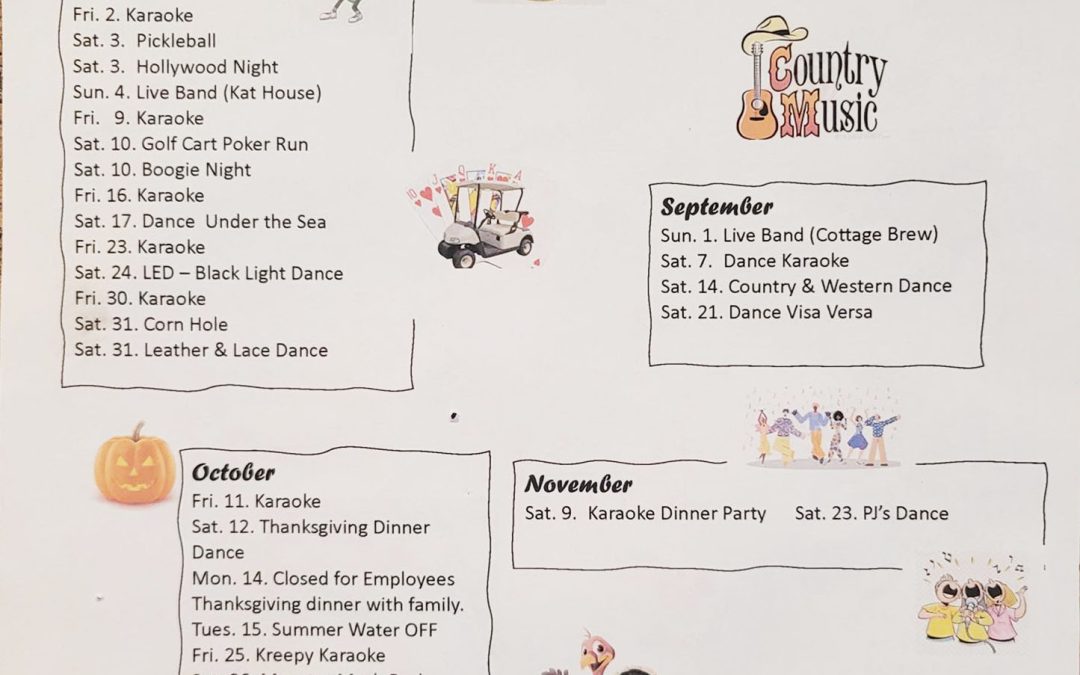 Fri. 2. Karaoke
Sat. 3. Pickleball
Sat. 3. Hollywood Night
Sun. 4. Live Band (Kat House)
Fri. 9. Karaoke
Sat. 10. Golf Cart Poker Run
Sat. 10. Boogie Night
Fri. 16. Karaoke
Sat. 17. Dance Under the Sea
Fri. 23. Karaoke
Sat. 24. LED – Black Light Dance
Fri. 30. Karaoke
Sat. 31. Corn Hole
Sat. 31. Leather & Lace Dance
Country
Music
September
Sun. 1. Live Band (Cottage Brew)
Sat. 7. Dance Karaoke
Sat. 14. Country & Western Dance
Sat. 21. Dance Visa Versa
October
Fri. 11. Karaoke
Sat. 12. Thanksgiving Dinner
Dance
Mon. 14. Closed for Employees
Thanksgiving dinner with family.
Tues. 15. Summer Water OFF
Fri. 25. Kreepy Karaoke
November
Sat. 9. Karaoke Dinner Party Sat. 23. PJ’s Dance